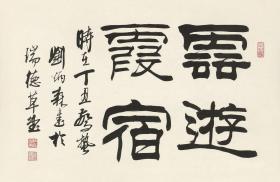 雲遊
霞宿
時在丁丑驚蟄
劉炳森書於
瑞德草堂